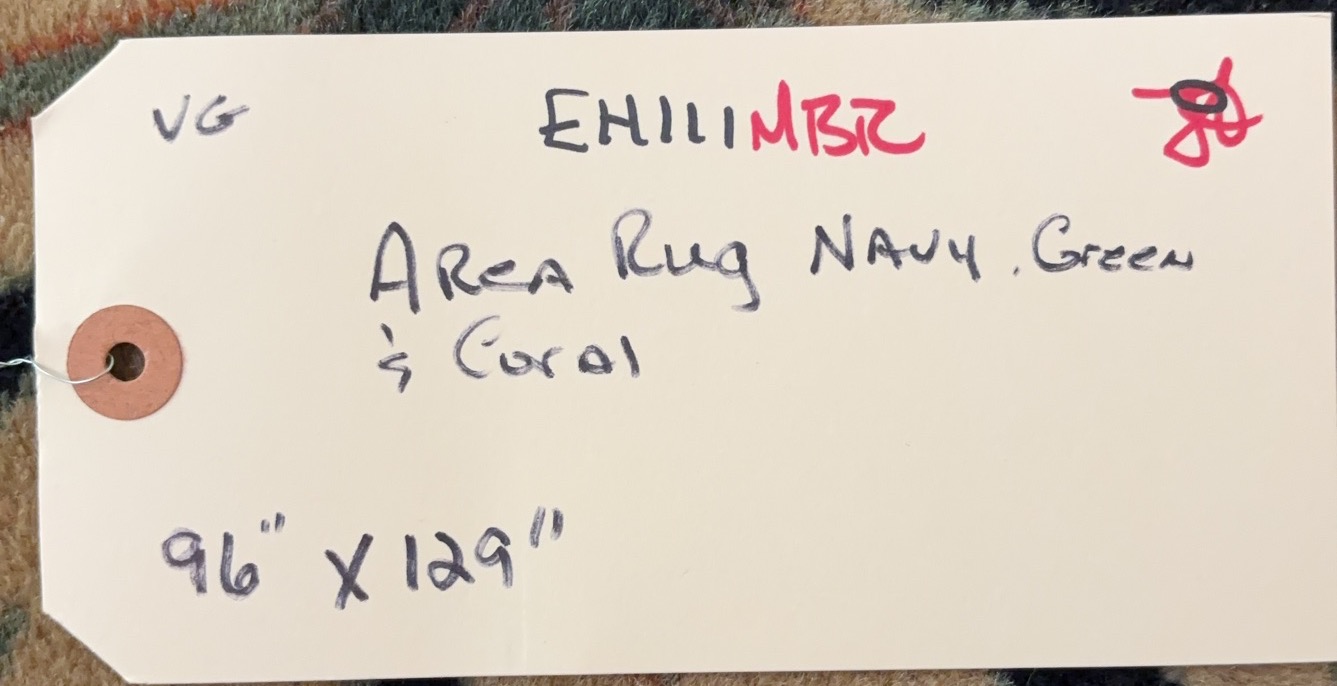 VG EH111MBR
Area Rug Navy, Green
& Coral
96" X 129"